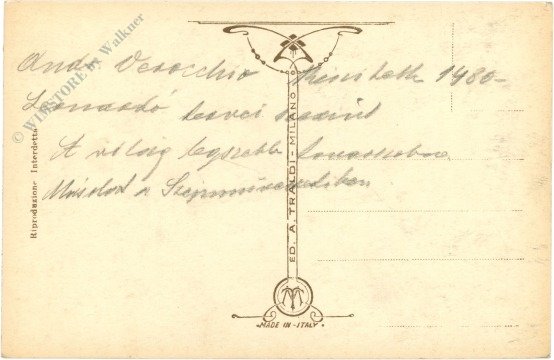 Andr Verocchio készítette 1480-
Leonardó tervei szerint
A világ legszebb lovasszobra
Másolat a Szépművészetiben
ED. A. TRALDI - MILANO
Riproduzione Interdetta
MADE IN ITALY
© WIMSTORE by Walkner